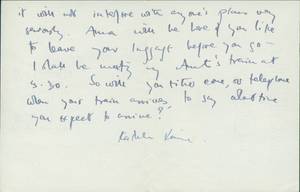 it will not interfere with anyone's plans very
seriously. Anna will be here if you like
to leave your luggage before you go –
I shall be meeting my Aunt's train at
5.30. So will you either come, or telephone
when your train arrives to say about time
you expect to arrive?